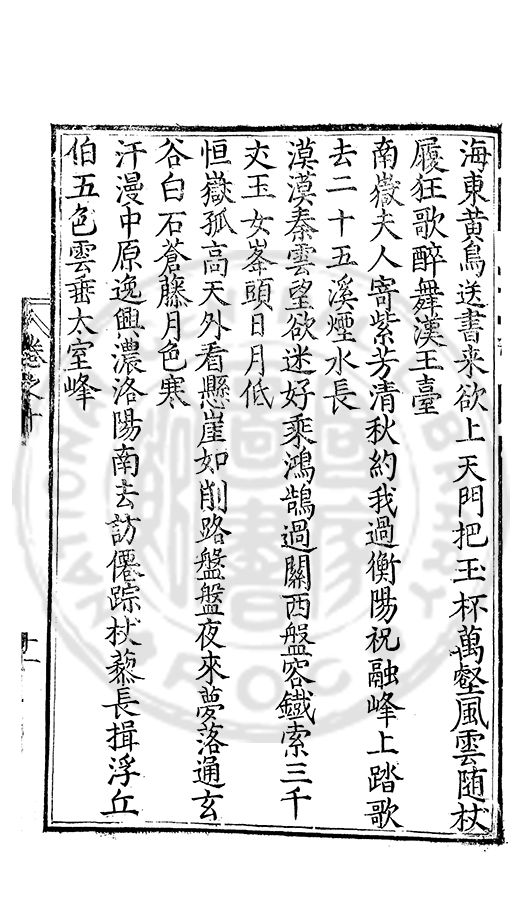 海東黃鳥送書来欲上天門把玉杯萬壑風雲随杖
履狂歌醉舞漢王臺
南嶽夫人寄紫芳清秋約我過衡陽祝融峰上踏歌
去二十五溪煙水長
漠漠秦雲望欲迷好乘鴻鵠過關西盤容鐵索三千
丈玉女峯頭日月低
恒嶽孤高天外看懸崖如削路盤盤夜來夢落通玄
谷白石蒼藤月色寒
汗漫中原逸興濃洛陽南去訪僊踪杖藜長揖浮丘
伯五色雲垂太室峰
卷之十
十一